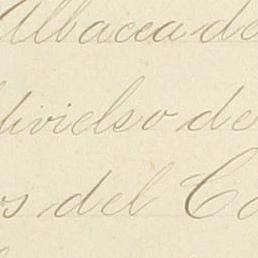 Albacea de
divielso de
os del Co